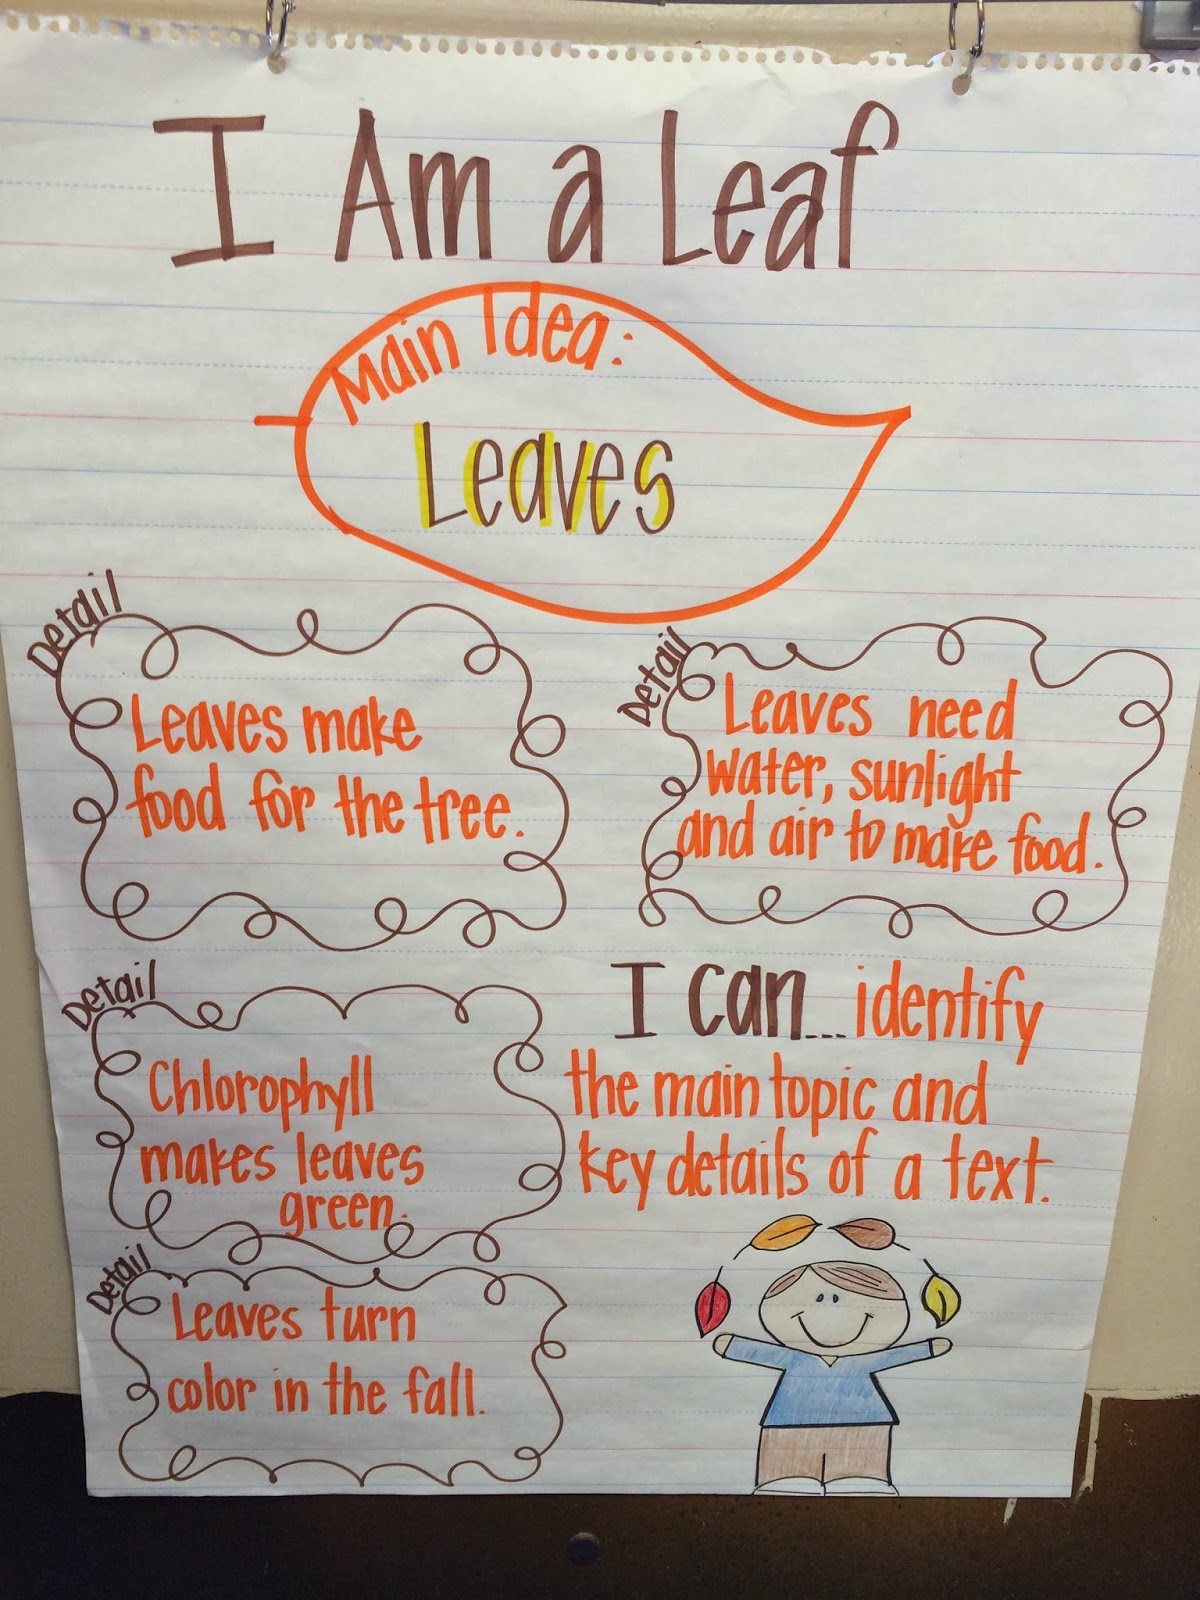 I Am a Leaf
Main Idea:
Leaves
Detail
Leaves make
food for the tree.
Detail
Leaves need
water, sunlight
and air to make food.
Detail
Chlorophyll
makes leaves
green.
I can... identify
the main topic and
key details of a text.
Detail
Leaves turn
color in the fall.